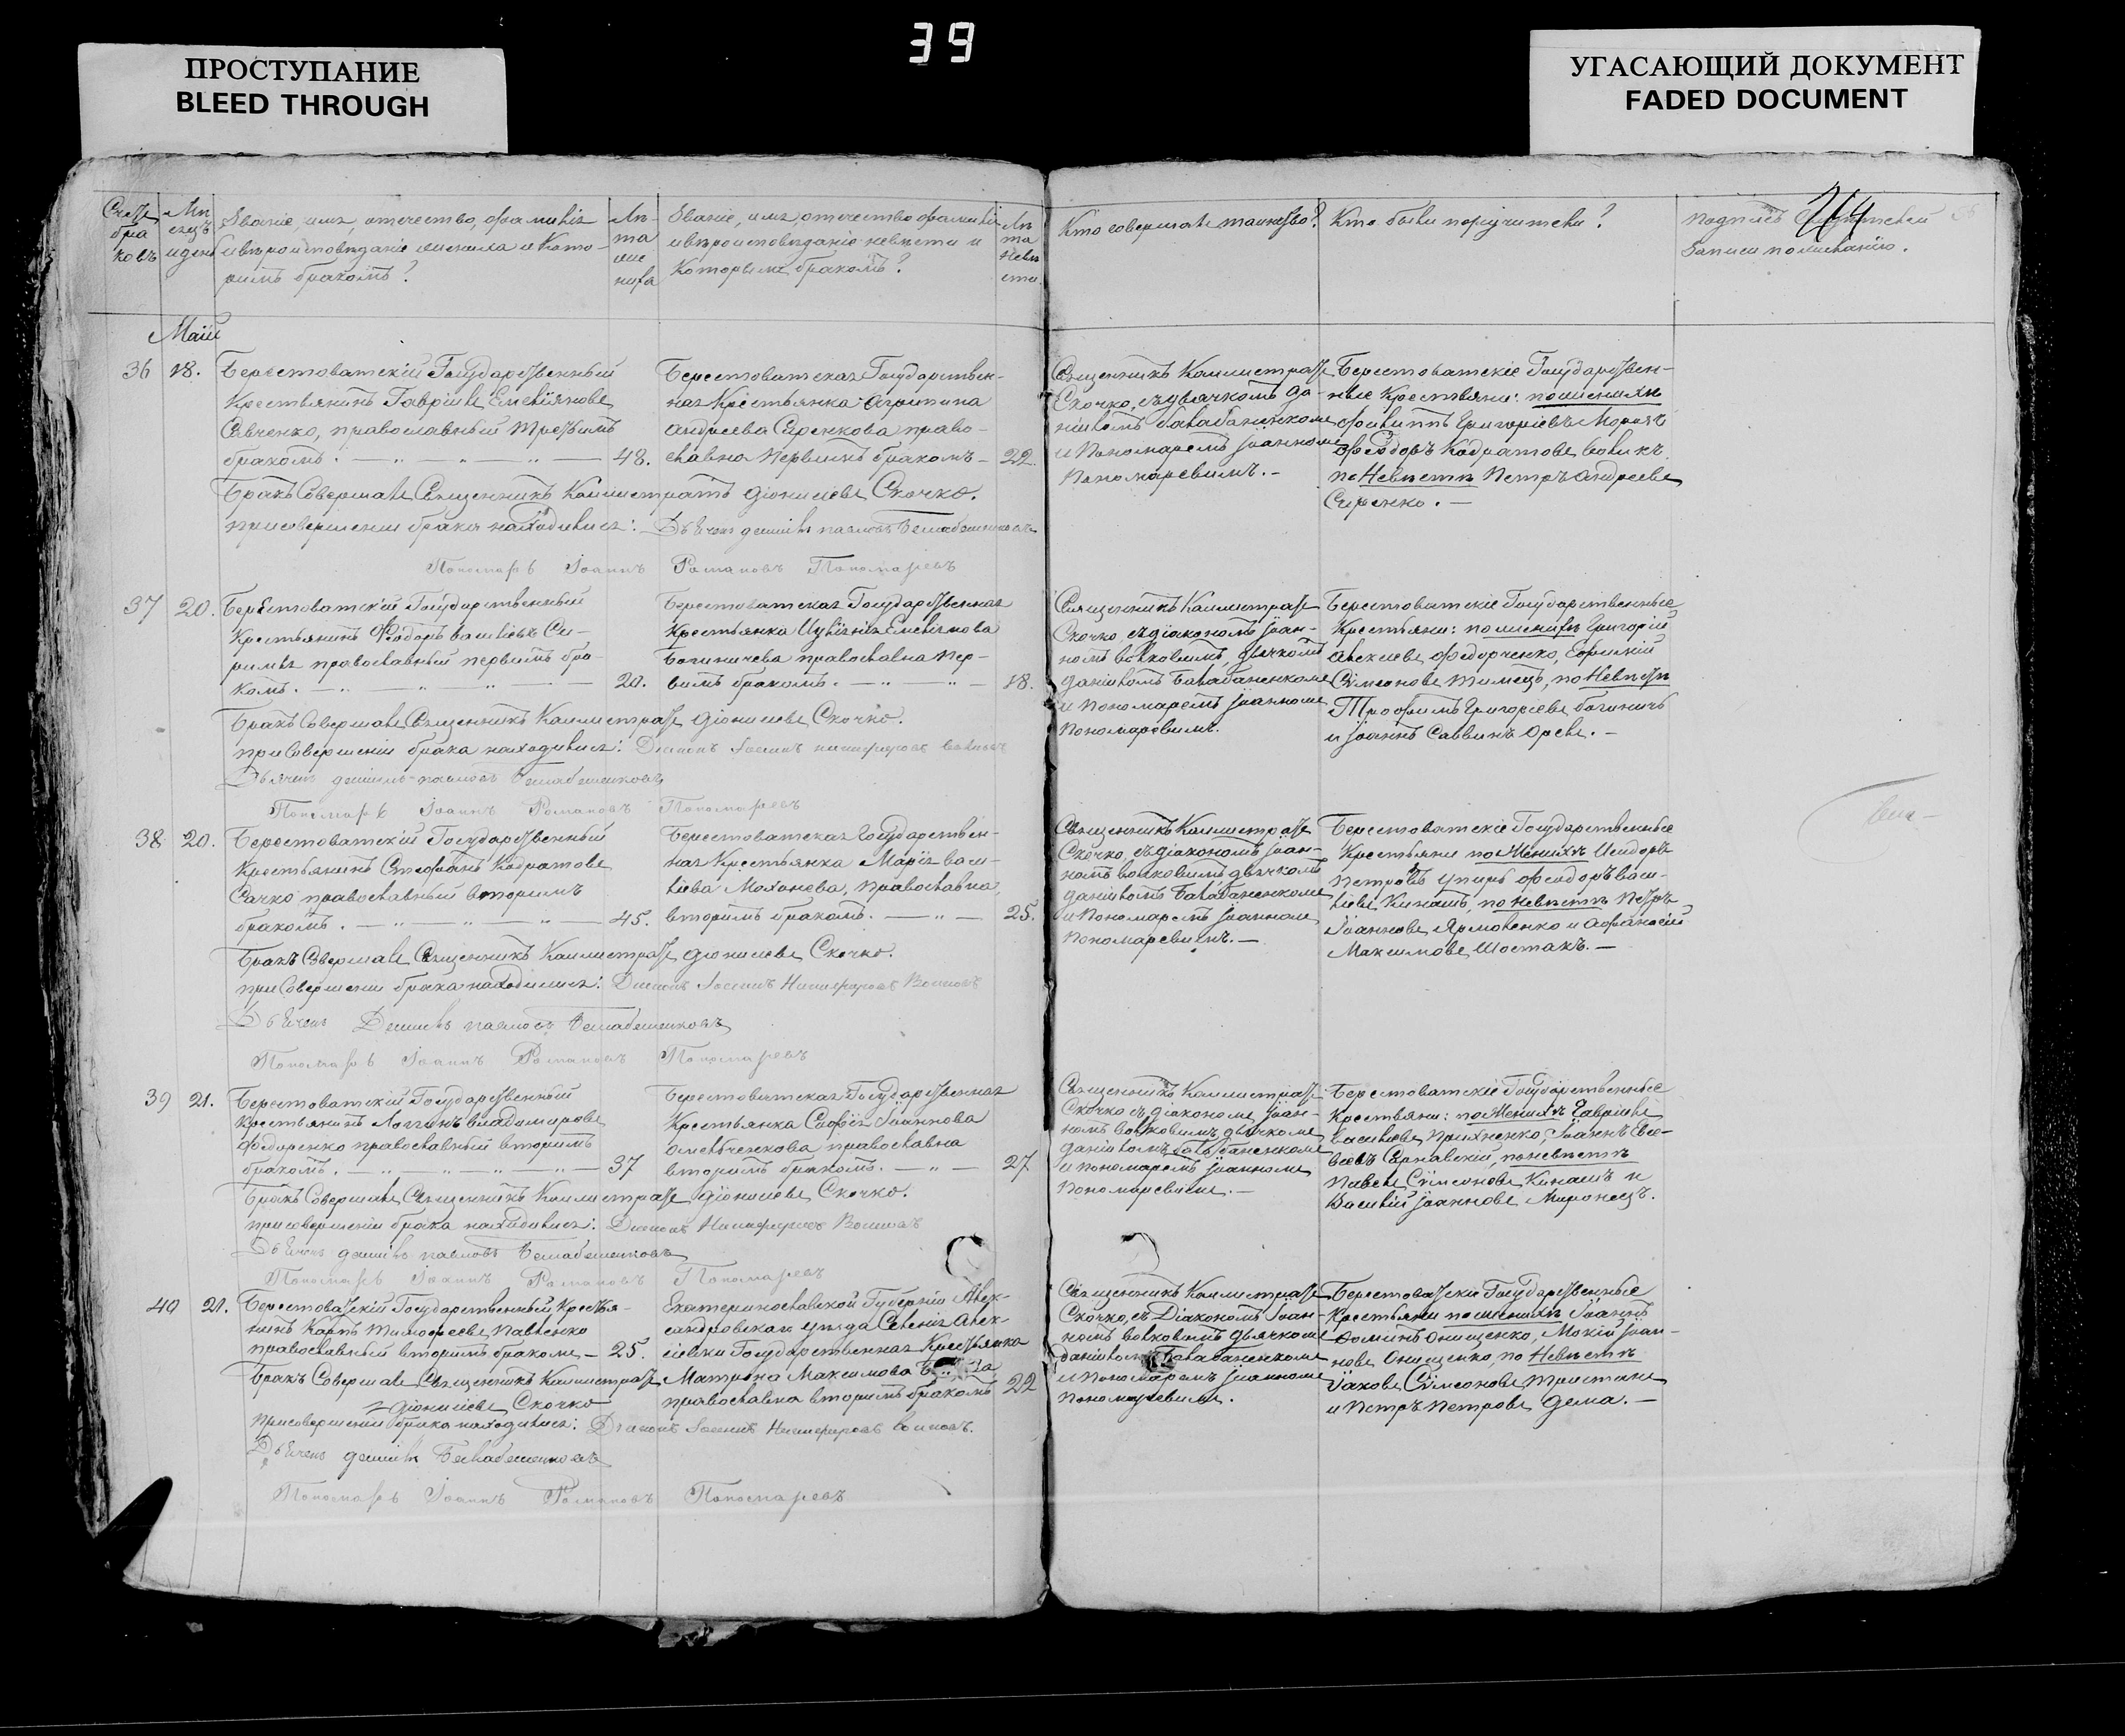 39
ПРОСТУПАНИЕ
BLEED THROUGH
УГАСАЮЩИЙ ДОКУМЕНТ
FADED DOCUMENT
264
Счетъ браковъ
Мѣсяцъ и день
Званіе, имя, отечество, фамилія
и вѣроисповѣданіе жениха и кото-
римъ бракомъ?
Лѣта жениха
Званіе, имя, отечество, фамилія
и вѣроисповѣданіе невѣсти и
которымъ бракомъ?
Лѣта невѣсти
Кто совершалъ таинство?
Кто были поручители?
Подпись свидѣтелей
записи по желанію.
Маій
36
18.
Берестоватскій Государственный
Крестьянинъ Гавріилъ Емеліяновъ
Савченко, православный третьимъ
бракомъ.
48.
Берестоватская Государствен-
ная Крестьянка Агрипина
Андреева Сѣренкова право-
славна первимъ бракомъ
22.
Священникъ Каллистратъ
Скочко, съ дьячкомъ Да-
ніиломъ Балабаненкомъ
и Пономаремъ Іоанномъ
Пономаревимъ.
Берестоватскіе Государствен-
ные Крестьяни: по женихѣ
Филиппъ Григоріевъ Морозъ
Феодоръ Кодратовъ Воликъ
по Невѣстѣ Петръ Андреевъ
Сиренко.
Бракъ Совершалъ Священникъ Каллистратъ Діонисіевъ Скочко.
При совершеніи брака находились: Дьячекъ Даніилъ Павловъ Балабаненковъ
Пономарь Іоаннъ Романовъ Пономаревъ
37
20.
Берестоватскій Государственный
Крестьянинъ Феодоръ Василіевъ Си-
православный первимъ бра-
комъ.
20.
Берестоватская Государственная
Крестьянка Иуліянія Емеліянова
Богиничева православна пер-
вимъ бракомъ.
18.
Священникъ Каллистратъ
Скочко, съ діакономъ Іоан-
номъ Волковимъ, дьячкомъ
Даніиломъ Балабаненкомъ
и Пономаремъ Іоанномъ
Пономаревимъ.
Берестоватскіе Государственные
Крестьяни: по женихѣ Григорій
Алексіевъ Федорченко, Ефимій
Сѵмеоновъ Тимецъ, по Невѣстѣ
Трофимъ Григоріевъ Богиничъ
и Іоаннъ Саввинъ Орелъ.
Бракъ Совершалъ Священникъ Каллистратъ Діонисіевъ Скочко.
при Совершеніи брака находились: Діаконъ Іоаннъ Никифоровъ Волковъ
Дьячекъ Даніилъ Павловъ Балабаненковъ
Пономарь Іоаннъ Романовъ Пономаревъ
38
20.
Берестоватскій Государственный
Крестьянинъ Стефанъ Кодратовъ
Сачко православный вторимъ
бракомъ.
45.
Берестоватская Государствен-
ная Крестьянка Марія Васи-
ліева Моланева, православна,
вторимъ бракомъ.
25.
Священникъ Каллистратъ
Скочко, съ діакономъ Іоан-
номъ Волковимъ, дьячкомъ
Даніиломъ Балабаненкомъ
и Пономаремъ Іоанномъ
Пономаревимъ.
Берестоватскіе Государственные
Крестьяни по Женихѣ Исидоръ
Петровъ Упирь Феодоръ Васи-
ліевъ Кинашъ, по Невѣстѣ Петръ
Іоанновъ Ярмоленко и Афанасій
Максимовъ Шостакъ.
Бракъ Совершалъ Священникъ Каллистратъ Діонисіевъ Скочко.
при Совершеніи брака находились: Діаконъ Іоаннъ Никифоровъ Волковъ
Дьячекъ Даніилъ Павловъ Балабаненковъ
Пономарь Іоаннъ Романовъ Пономаревъ
39
21.
Берестоватскій Государственный
Крестьянинъ Логгинъ Владимировъ
Федоренко православный вторимъ
бракомъ.
37
Берестоватская Государственная
Крестьянка Софія Іоаннова
Омельченкова православна
вторимъ бракомъ.
27.
Священникъ Каллистратъ
Скочко съ діакономъ Іоан-
номъ Волковимъ, дьячкомъ
Даніиломъ Балабаненкомъ
и Пономаремъ Іоанномъ
Пономаревимъ.
Берестоватскіе Государственные
Крестьяни: по Женихѣ Гавріилъ
Василіевъ Іоаннъ
по невѣстѣ
Павелъ Сѵмеоновъ Кинашъ и
Василій Іоанновъ Миронецъ.
Бракъ Совершалъ Священникъ Каллистратъ Діонисіевъ Скочко.
при совершеніи брака находились: Діаконъ Никифоровъ Волковъ
Дьячекъ Даніилъ Павловъ Балабаненковъ
Пономарь Іоаннъ Романовъ Пономаревъ
40
21.
Берестоватскій Государственный Крестья-
нинъ Карпъ Тимофеевъ Павленко
православный вторимъ бракомъ
25.
Екатеринославской Губерніи Алек-
сандровскаго уѣзда Селенія Алек-
сіевки Государственная Крестьянка
Матрона Максимова
православна вторимъ бракомъ
22
Священникъ Каллистратъ
Скочко, съ Діакономъ Іоан-
номъ Волковимъ дьячкомъ
Даніиломъ Балабаненкомъ
и Пономаремъ Іоанномъ
Пономаревимъ.
Берестоватскіе Государственные
Крестьяни по женихѣ Іоаннъ
Фоминъ Онищенко, Мокій Іоан-
новъ Онищенко, по Невѣстѣ
Іаковъ Сѵмеоновъ Тристанъ
и Петръ Петровъ Дема.
Бракъ Совершалъ Священникъ Каллистратъ
Діонисіевъ Скочко
При совершеніи брака находились: Діаконъ Іоаннъ Никифоровъ Волковъ.
Дьячекъ Даніилъ Балабаненковъ
Пономарь Іоаннъ Романовъ Пономаревъ